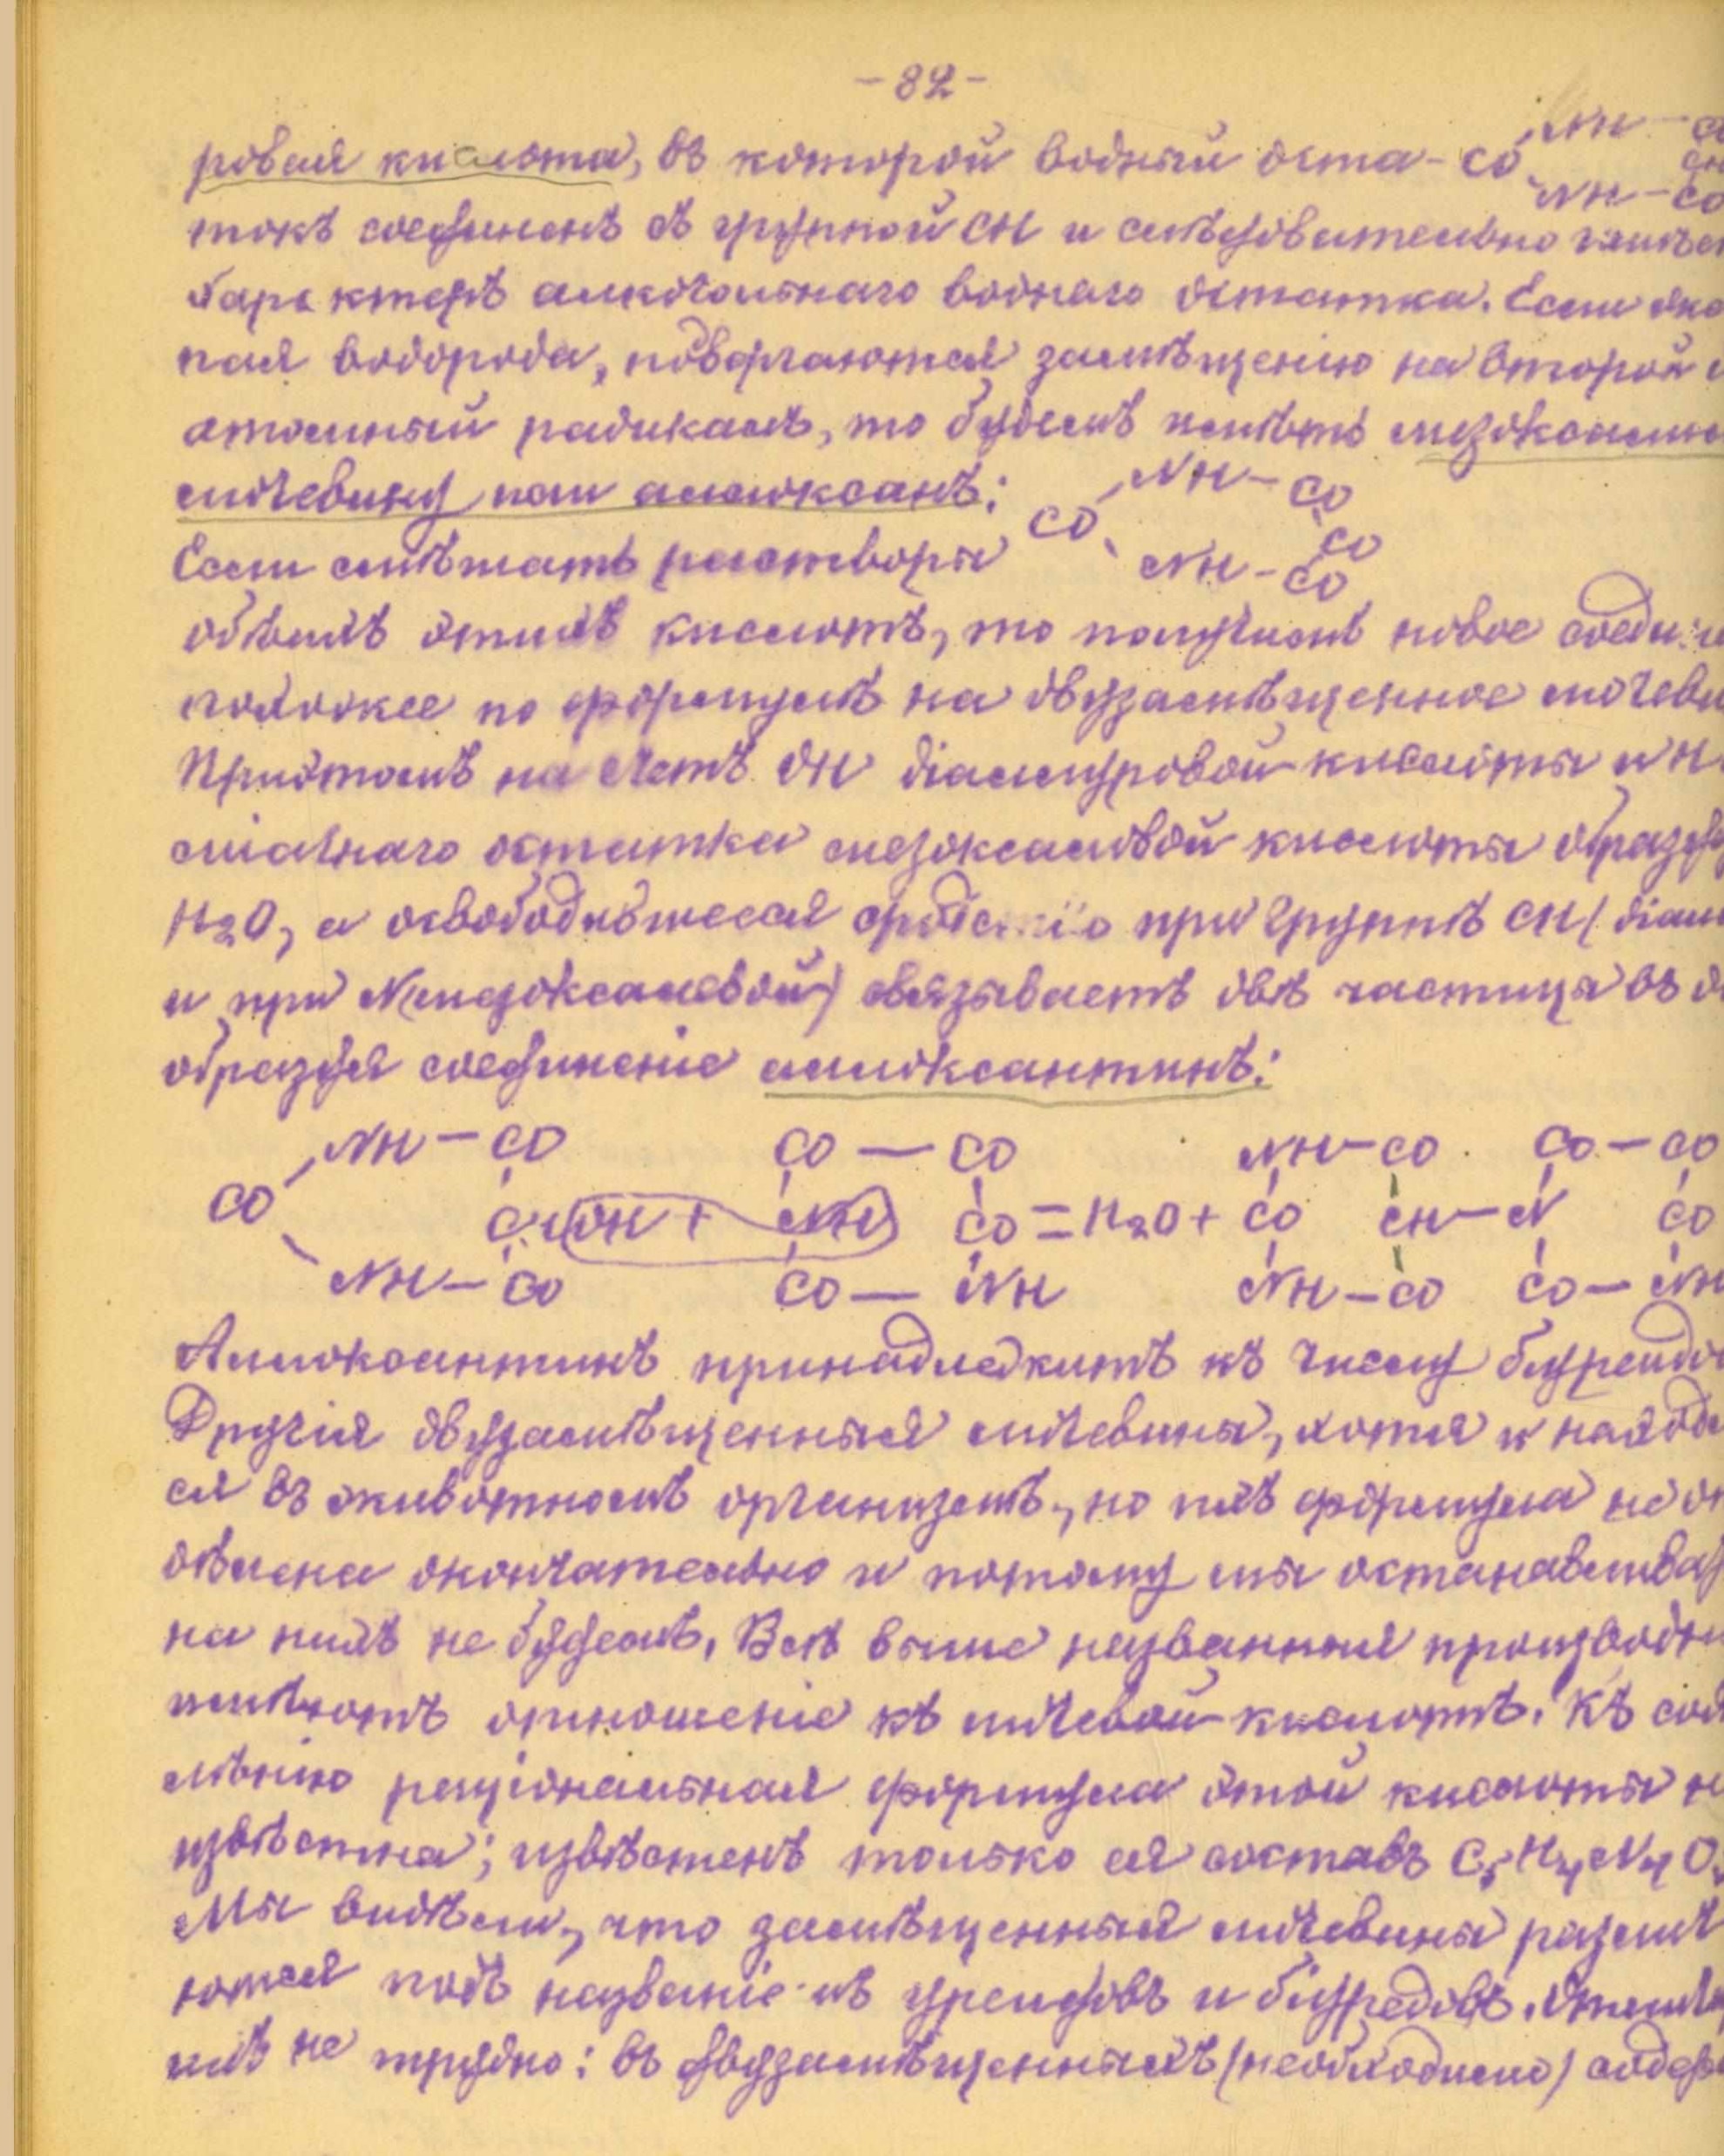 -82-
ровая кислота, въ которой водный оста- CO NH - C
NH - CO
токъ соединенъ съ группой CH и слѣдовательно имѣет
характеръ алкогольнаго воднаго остатка. Если эко
пая водорода, подвергаются замѣщенію на второй
атомный радикалъ, то будемъ имѣть мезоксалил
мочевину или аллоксанъ: CO NH - CO CO NH - CO
Если смѣшать растворы
обѣихъ этихъ кислотъ, то получимъ новое соеди
похожее по формулѣ на двузамѣщенное мочеви
Притомъ на счетъ OH діалуровой кислоты и H
міачнаго остатка мезоксаловой кислоты образу
H2O, а освободившееся сродство при группѣ CH (діал
и при N мезоксаловой) связываетъ двѣ частицы въ
образуя соединеніе аллоксантинъ:
NH - CO CO — CO NH - CO CO - CO
CO CH OH + NH CO = H2O + CO CH - N CO
NH - CO CO — NH NH - CO CO - NH
Аллоксантинъ принадлежитъ къ числу біуреидо
Другія двузамѣщенныя мочевины, хотя и находя
ся въ животномъ организмѣ, но ихъ формула не
дѣлена окончательно и потому мы останавлива
на нихъ не будемъ. Всѣ выше названныя производны
имѣютъ отношеніе къ мочевой кислотѣ. Къ сож
лѣнію раціональная формула этой кислоты не
извѣстна; извѣстенъ только ея составъ C5H4N4O3
Мы видѣли, что замѣщенныя мочевины различ
ются подъ названіемъ уреидовъ и біуредовъ. Отлич
ихъ не трудно: въ двузамѣщенныхъ (необходимо) содер